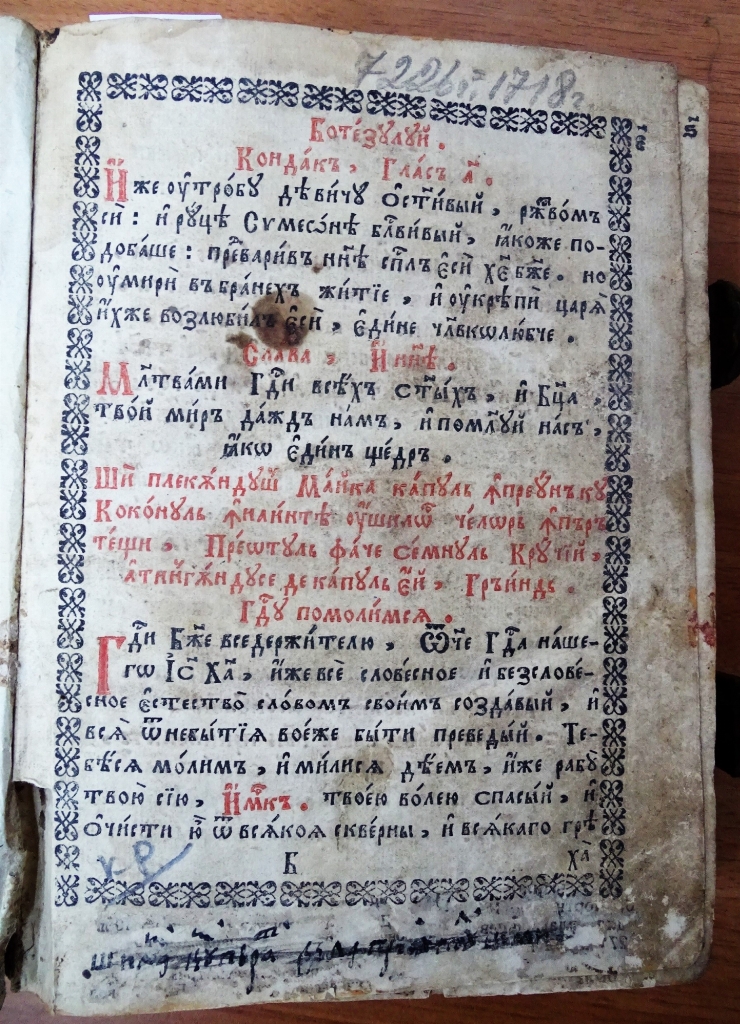 7226 г. 1718 г
Боте́зꙋлꙋй.
Конда́къ, Гла́съ а҃.
И҆́же ᲂу҆тро́бꙋ дѣви́чꙋ ѡ҆ст҃и́вый, рж҃тво́мъ
си́: и҆ рꙋ́цѣ Сѵмеѡ́нѣ бл҃ви́вый, ꙗ҆́коже по-
доба́ше: пр҃евари́въ нн҃ѣ сп҃лъ є҆сѝ хе҃ бж҃е. но
ᲂу҆мирѝ въ бра́нехъ житїе, и҆ ᲂу҆крѣпѝ царѧ̀
и҆́хже возлюби́лъ є҆сѝ, є҆ди́не чл҃вколю́бче.
Сла́ва, И҆ нн҃ѣ.
Мл҃твами Гд҃и всѣ́хъ ст҃ы́хъ, и҆ Бц҃а,
тво́й ми́ръ да́ждъ на́мъ, и҆ поми́лꙋй на́съ,
ꙗ҆́кѡ є҆ди́нъ ще́дръ.
Шѝ плекѫ́ндꙋшй Ма́йка ка́пꙋль
Коко́нꙋль
те́щи, Прео́тꙋль фа́че се́мнꙋль Крꙋ́чїй,
де ка́пꙋль є҆́й, Гръи́ндъ.
Гд҃ꙋ помоли́мсѧ.
Гд҃и Бж҃е вседержи́телю, Ѿч҃е Гд҃а на́ше-
гѡ І҆с҃ Ха҃, и҆́же всѐ слове́сное и҆ безслове́-
сное є҆стество̀ сло́вомъ свои́мъ созда́вый, и҆
всѧ̀ ѿ небы́тїѧ вое́же бы́ти преведы́й. Те-
бѣ́сѧ мо́лимъ, и҆ ми́лисѧ дѣ́емъ, и҆́же рабꙋ̀
твою̀ сїю̀, И҆́м҃къ. твое́ю во́лею спасы́й, и҆
ѡ҆чи́сти ю҆̀ ѿ всѧ́коѧ скве́рны, и҆ всѧ́кагѡ грѣ
В
ха̀